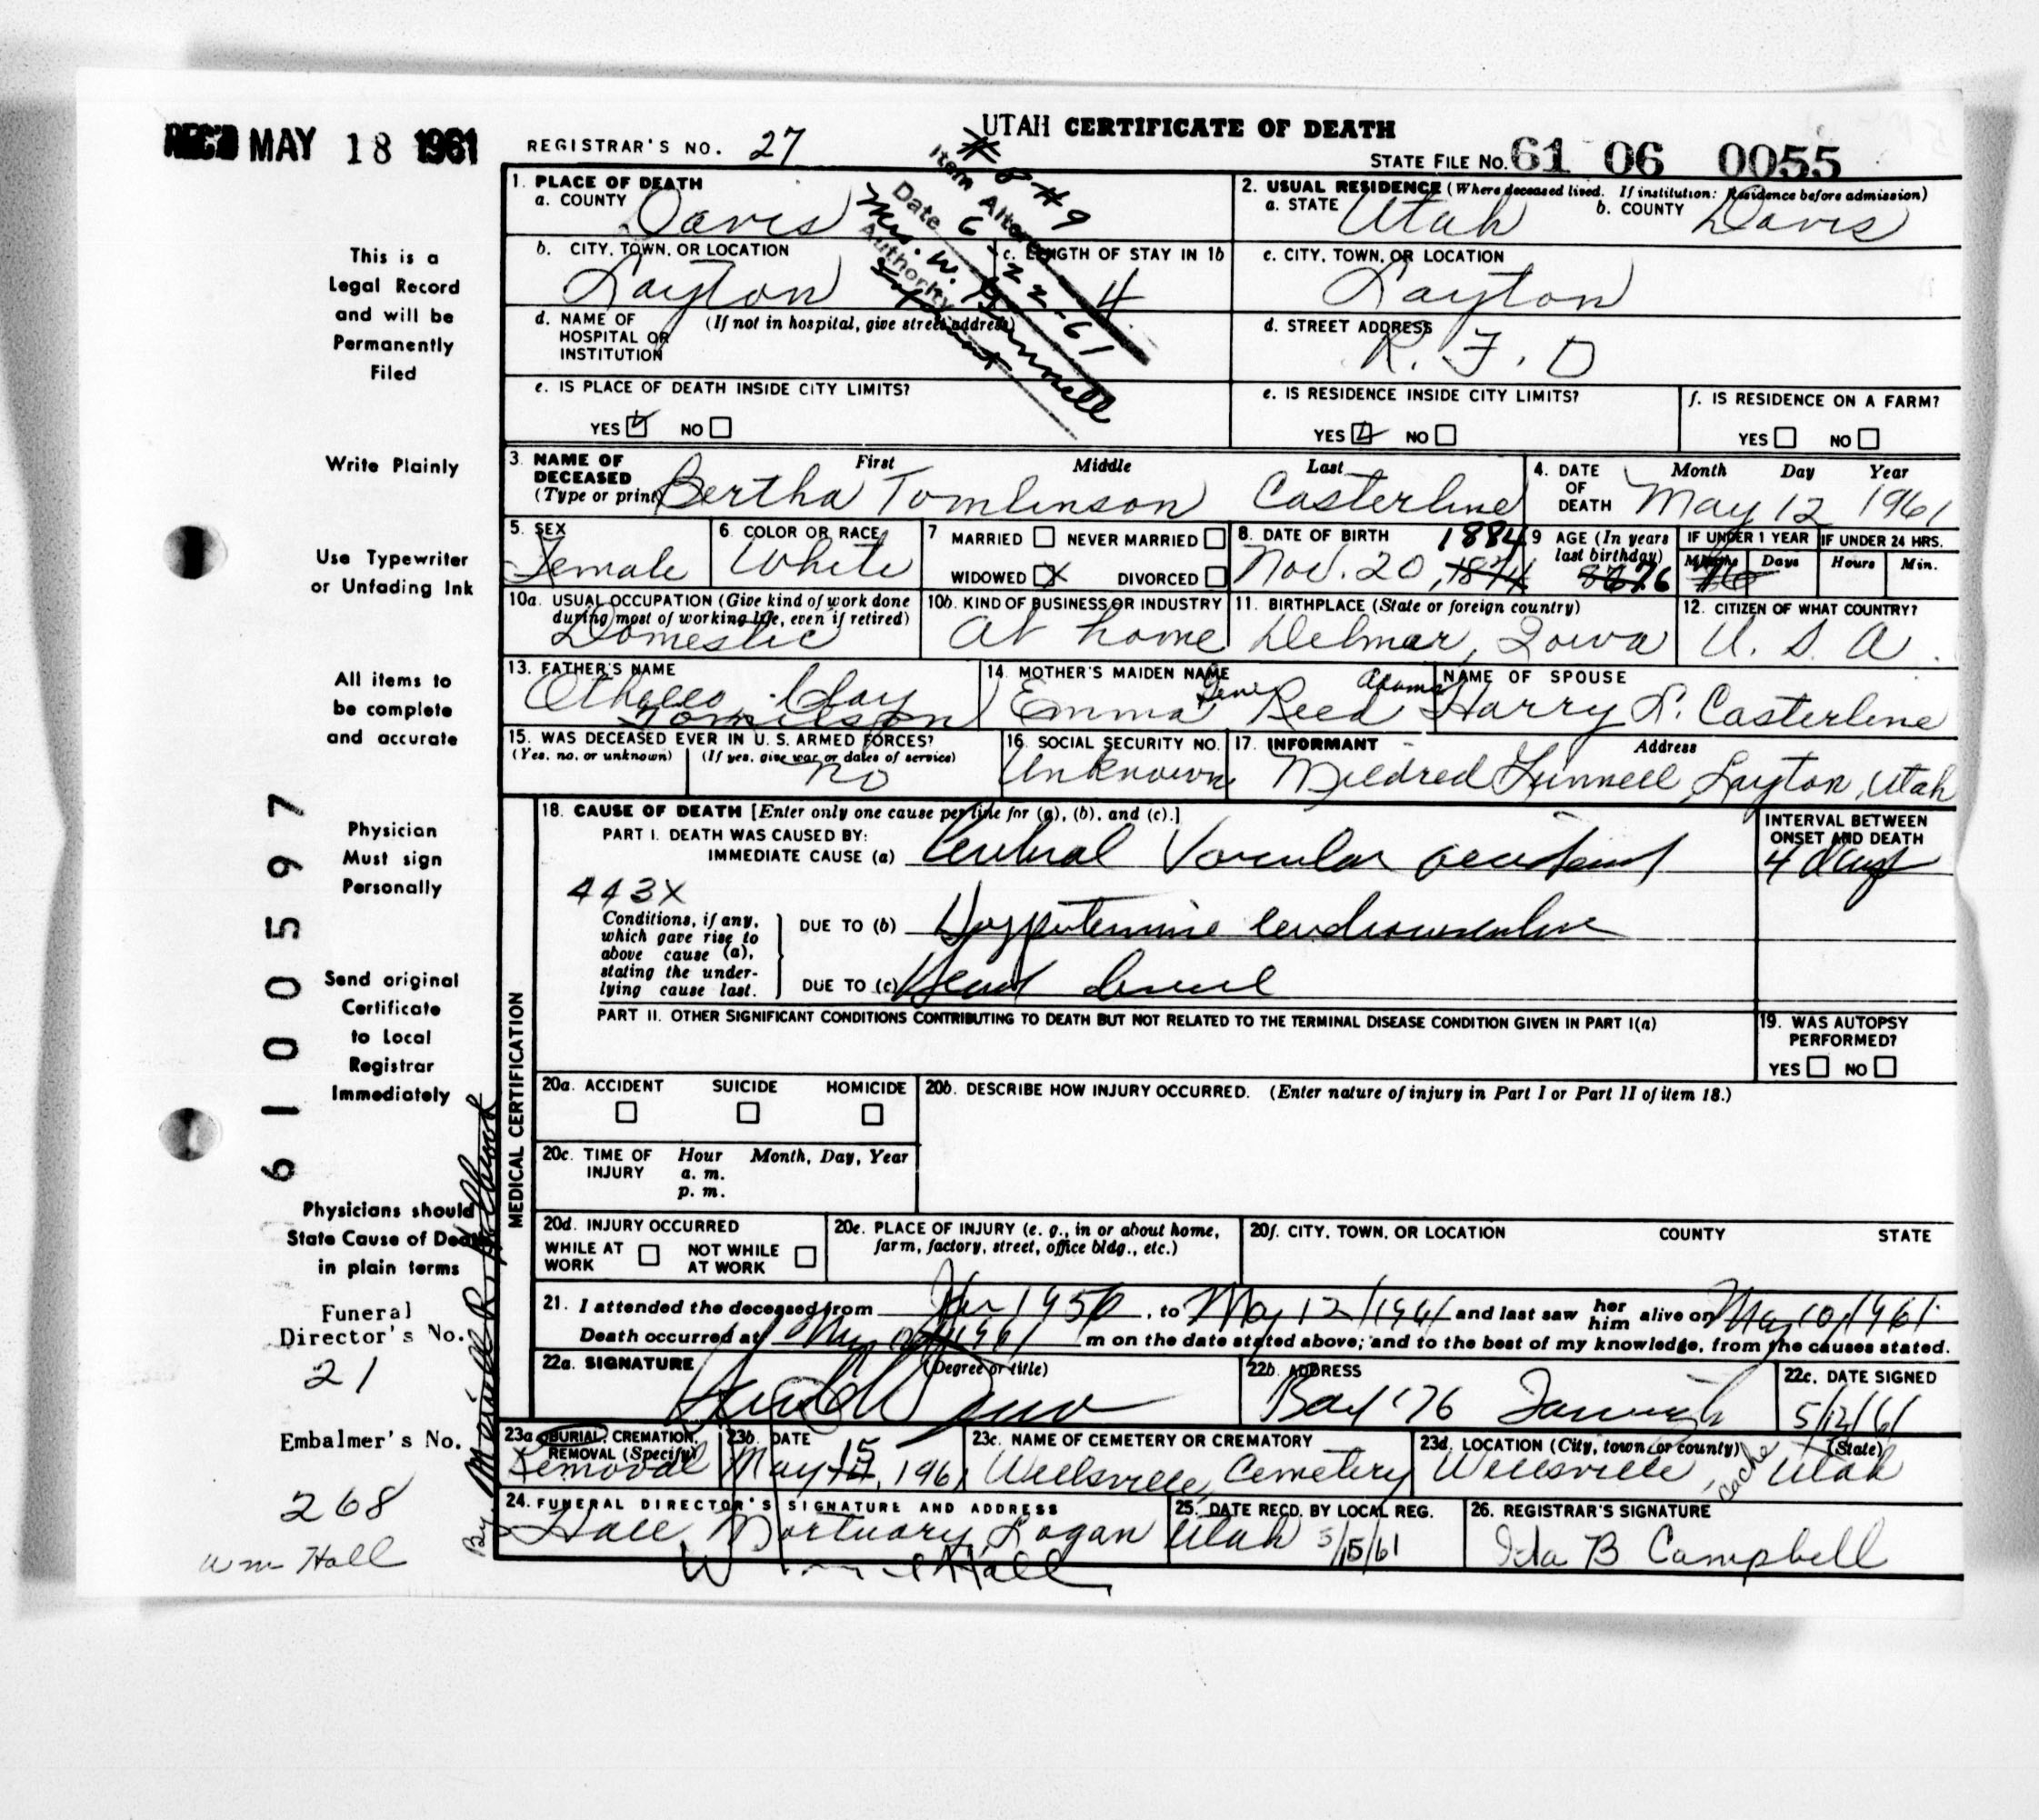 REC'D MAY 18 1961
REGISTRAR'S NO. 27
UTAH CERTIFICATE OF DEATH
STATE FILE NO. 61 06 0055
Item Altered #8 #9
Date 6-22-61
Authority Mrs. W.
Informant
1. PLACE OF DEATH
a. COUNTY Davis
2. USUAL RESIDENCE (Where deceased lived. If institution: Residence before admission)
a. STATE Utah b. COUNTY Davis
b. CITY, TOWN, OR LOCATION Layton
c. LENGTH OF STAY IN 1b 4
c. CITY, TOWN, OR LOCATION Layton
d. NAME OF HOSPITAL OR INSTITUTION (If not in hospital, give street address)
d. STREET ADDRESS R. F. D
e. IS PLACE OF DEATH INSIDE CITY LIMITS?
YES NO
e. IS RESIDENCE INSIDE CITY LIMITS?
YES NO
f. IS RESIDENCE ON A FARM?
YES NO
3. NAME OF DECEASED (Type or print) First Middle Last
Bertha Tomlinson Casterline
4. DATE OF DEATH Month Day Year
May 12 1961
5. SEX Female
6. COLOR OR RACE White
7 MARRIED NEVER MARRIED
WIDOWED X DIVORCED
8. DATE OF BIRTH 1884
Nov. 20, 1874
9 AGE (In years last birthday) 76
IF UNDER 1 YEAR Months Days
IF UNDER 24 HRS. Hours Min.
10a. USUAL OCCUPATION (Give kind of work done during most of working life, even if retired)
Domestic
10b. KIND OF BUSINESS OR INDUSTRY
At home
11. BIRTHPLACE (State or foreign country)
Delmar, Iowa
12. CITIZEN OF WHAT COUNTRY?
U. S. A.
13. FATHER'S NAME
Othello Clay
Tomlinson
14. MOTHER'S MAIDEN NAME
Emma Reed Adams
NAME OF SPOUSE
Harry L. Casterline
15. WAS DECEASED EVER IN U. S. ARMED FORCES?
(Yes, no, or unknown) (If yes, give war or dates of service)
no
16. SOCIAL SECURITY NO.
Unknown
17. INFORMANT Address
Mildred Funnell Layton, Utah
MEDICAL CERTIFICATION
18. CAUSE OF DEATH [Enter only one cause per line for (a), (b), and (c).]
PART I. DEATH WAS CAUSED BY:
IMMEDIATE CAUSE (a) Cerebral Vascular accident
INTERVAL BETWEEN ONSET AND DEATH
4 days
443X
Conditions, if any, which gave rise to above cause (a), stating the underlying cause last.
DUE TO (b) Hypertensive cardiovascular
DUE TO (c) Heart disease
PART II. OTHER SIGNIFICANT CONDITIONS CONTRIBUTING TO DEATH BUT NOT RELATED TO THE TERMINAL DISEASE CONDITION GIVEN IN PART I(a)
19. WAS AUTOPSY PERFORMED?
YES NO
20a. ACCIDENT SUICIDE HOMICIDE
20b. DESCRIBE HOW INJURY OCCURRED. (Enter nature of injury in Part I or Part II of item 18.)
20c. TIME OF INJURY Hour Month, Day, Year
a. m.
p. m.
20d. INJURY OCCURRED
WHILE AT WORK NOT WHILE AT WORK
20e. PLACE OF INJURY (e. g., in or about home, farm, factory, street, office bldg., etc.)
20f. CITY, TOWN, OR LOCATION COUNTY STATE
21. I attended the deceased from 1956, to May 12/1961 and last saw her him alive on May 10/1961.
Death occurred at May 1961 m on the date stated above; and to the best of my knowledge, from the causes stated.
22a. SIGNATURE (Degree or title)
22b. ADDRESS
Box 176
22c. DATE SIGNED
5/12/61
23a BURIAL, CREMATION, REMOVAL (Specify)
Removal
23b. DATE
May 15, 1961
23c. NAME OF CEMETERY OR CREMATORY
Wellsville Cemetery
23d. LOCATION (City, town, or county) (State)
Wellsville, Cache Utah
24. FUNERAL DIRECTOR'S SIGNATURE AND ADDRESS
Hall Mortuary, Logan Utah
25. DATE RECD. BY LOCAL REG.
5/15/61
26. REGISTRAR'S SIGNATURE
Ida B Campbell
This is a
Legal Record
and will be
Permanently
Filed
Write Plainly
Use Typewriter
or Unfading Ink
All items to
be complete
and accurate
Physician
Must sign
Personally
Send original
Certificate
to Local
Registrar
Immediately
Physicians should
State Cause of Death
in plain terms
Funeral
Director's No.
21
Embalmer's No.
268
Wm Hall
6100597
By